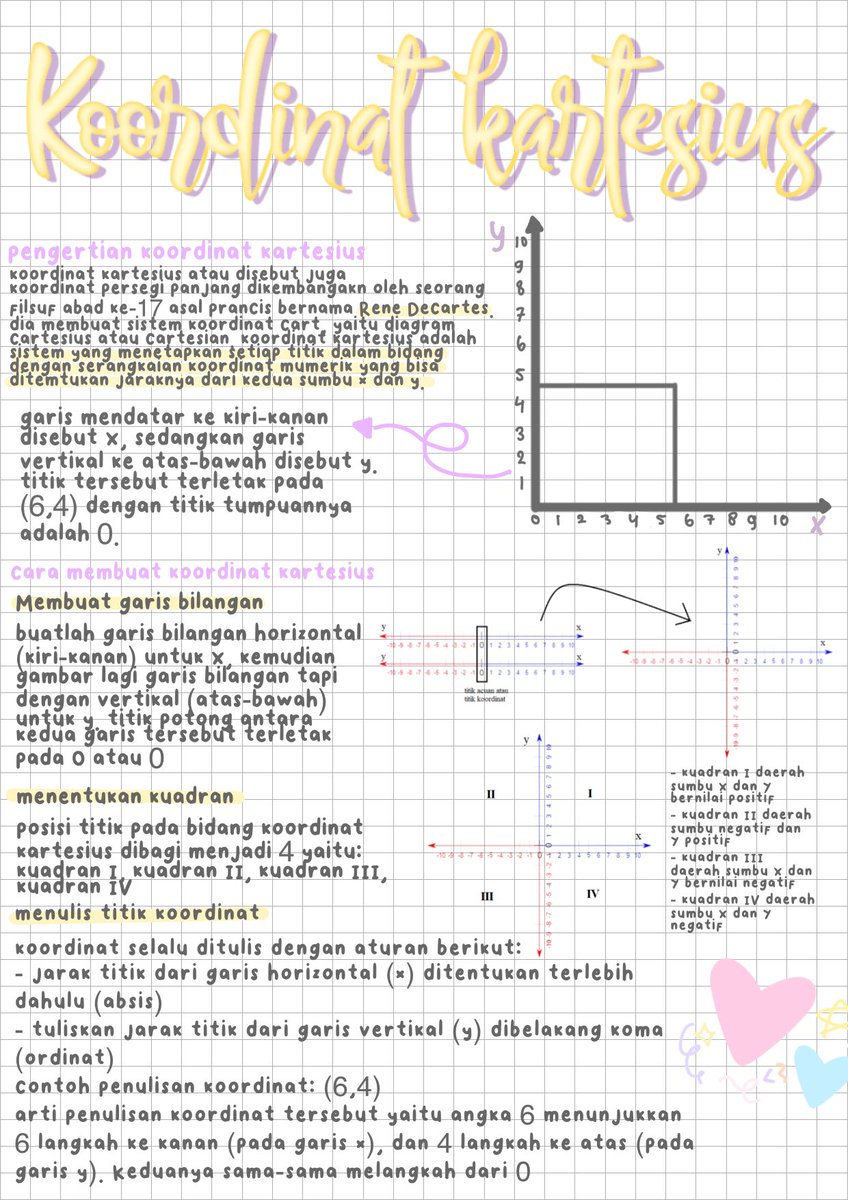 Koordinat kartesius
pengertian koordinat kartesius
koordinat kartesius atau disebut juga
koordinat persegi panjang dikembangakn oleh seorang
filsuf abad ke-17 asal prancis bernama Rene DeCartes.
dia membuat sistem koordinat Cart. yaitu diagram
Cartesius atau Cartesian. koordinat kartesius adalah
sistem yang menetapkan setiap titik dalam bidang
dengan serangkaian koordinat mumerik yang bisa
ditemtukan jaraknya dari kedua sumbu x dan y.
y
10
9
8
7
6
5
4
3
2
1
0 1 2 3 4 5 6 7 8 9 10
x
garis mendatar ke kiri-kanan
disebut x, sedangkan garis
vertikal ke atas-bawah disebut y.
titik tersebut terletak pada
(6,4) dengan titik tumpuannya
adalah 0.
cara membuat koordinat kartesius
Membuat garis bilangan
buatlah garis bilangan horizontal
(kiri-kanan) untuk x, kemudian
gambar lagi garis bilangan tapi
dengan vertikal (atas-bawah)
untuk y. titik potong antara
kedua garis tersebut terletak
pada 0 atau 0
y x
-10 -9 -8 -7 -6 -5 -4 -3 -2 -1 0 1 2 3 4 5 6 7 8 9 10
y x
-10 -9 -8 -7 -6 -5 -4 -3 -2 -1 0 1 2 3 4 5 6 7 8 9 10
titik acuan atau
titik koordinat
y
x
-10 -9 -8 -7 -6 -5 -4 -3 -2 -1 0 1 2 3 4 5 6 7 8 9 10
-10 -9 -8 -7 -6 -5 -4 -3 -2 -1 0 1 2 3 4 5 6 7 8 9 10
menentukan kuadran
posisi titik pada bidang koordinat
kartesius dibagi menjadi 4 yaitu:
kuadran I, kuadran II, kuadran III,
kuadran IV
y
II I
x
-10 -9 -8 -7 -6 -5 -4 -3 -2 -1 0 1 2 3 4 5 6 7 8 9 10
-10 -9 -8 -7 -6 -5 -4 -3 -2 -1 0 1 2 3 4 5 6 7 8 9 10
III IV
- kuadran I daerah
sumbu x dan y
bernilai positif
- kuadran II daerah
sumbu negatif dan
y positif
- kuadran III
daerah sumbu x dan
y bernilai negatif
- kuadran IV daerah
sumbu x dan y
negatif
menulis titik koordinat
koordinat selalu ditulis dengan aturan berikut:
- jarak titik dari garis horizontal (x) ditentukan terlebih
dahulu (absis)
- tuliskan jarak titik dari garis vertikal (y) dibelakang koma
(ordinat)
contoh penulisan koordinat: (6,4)
arti penulisan koordinat tersebut yaitu angka 6 menunjukkan
6 langkah ke kanan (pada garis x), dan 4 langkah ke atas (pada
garis y). Keduanya sama-sama melangkah dari 0
<3